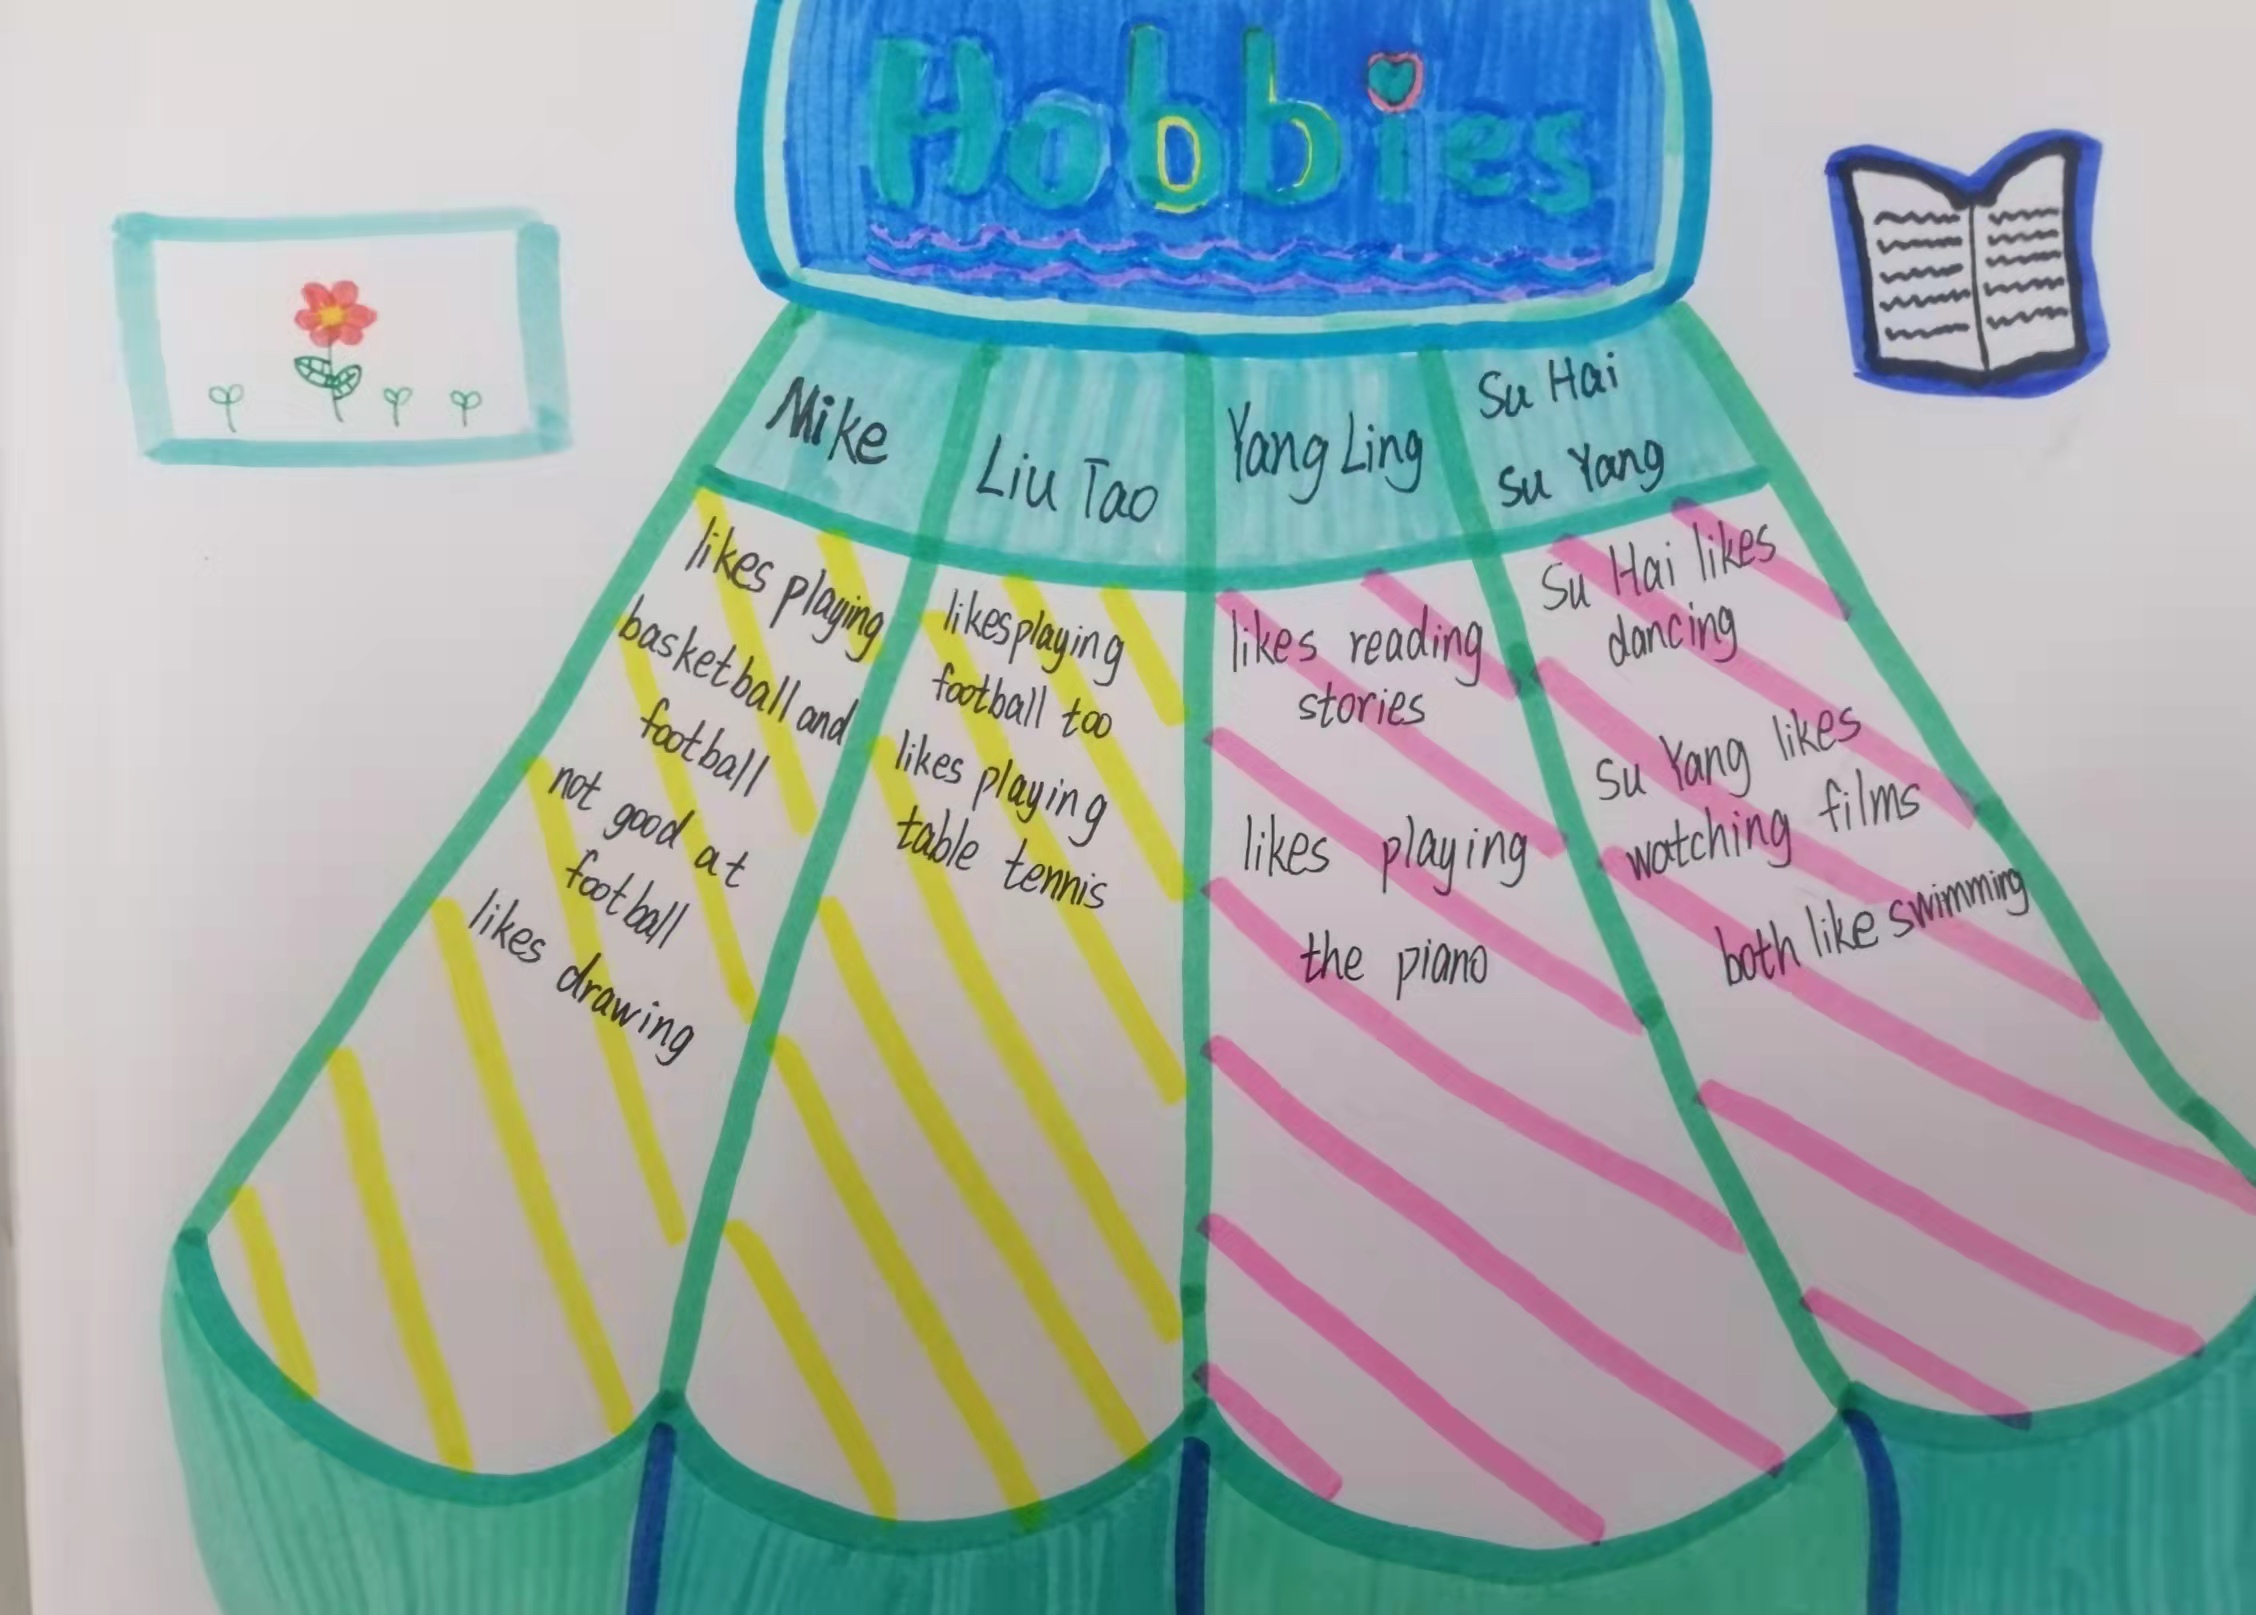 Hobbies
Mike
likes playing
basketball and
football
not good at
football
likes drawing
Liu Tao
likes playing
football too
likes playing
table tennis
Yang Ling
likes reading
stories
likes playing
the piano
Su Hai
Su Yang
Su Hai likes
dancing
Su Yang likes
watching films
both like swimming